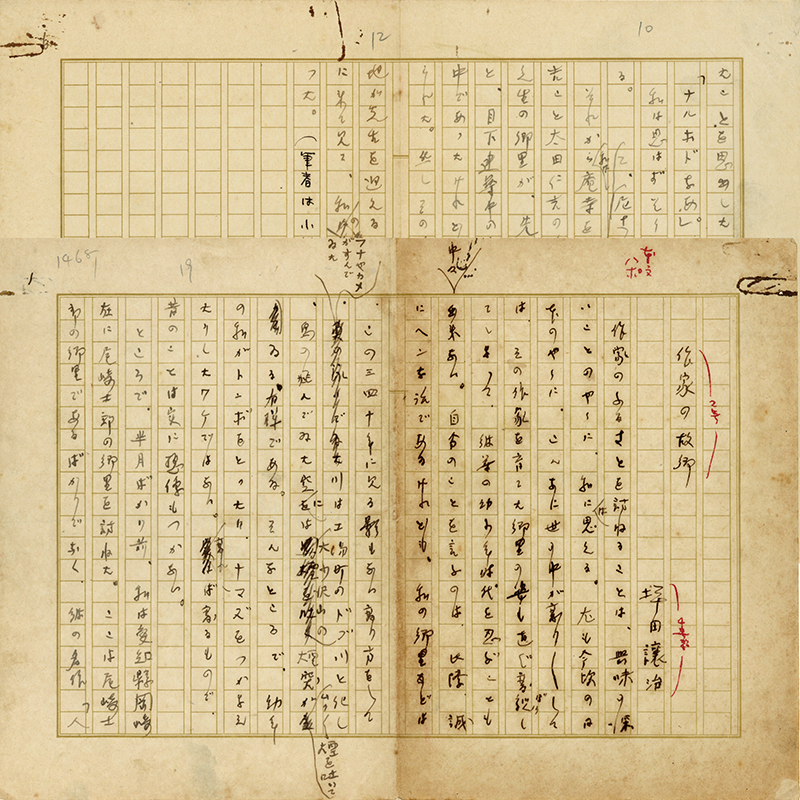 10
たことを思ひ出した
「ナルホドなあ」。
私は思はずそう
る。
吉こと太田仁吉の
先生の郷里が、先
と、目下建築中の
中であったけれど
12
地が先生を迎える
に来て見て、私が
った。（筆者は小
1468
19
本文
8ポ
作家の故郷
2号
坪田譲治
作家のふるさとを訪ねることは、興味の深
いことのやうに、私には思える。尤も今次の
のやうに、こんなに世の中が変り
は、その作家を育てた郷里の姿も変貌し
てしまって、彼等の幼少年時代を忍ぶことも
出来ない。自分のことを言ふのは、此際、誠
にヘンな話であるけれども、私の郷里などは
、この三四十年に見る影もない変り方をして
フナやカメのすんでゐた川は工場町のドブ川と化し
、鳥の飛んでゐた空には大小沢山の煙突が
煙を吐いてゐる有様である。そんなところで、幼年
の私がトンボをとったり、ナマズをつかまえ
たりしたワケではない。変れば変るもので、
昔のことは実に想像もつかない。
ところで、半月ばかり前、私は愛知縣岡崎
在に尾崎士郎の郷里を訪ねた。ここは尾崎士
郎の郷里であるばかりでなく、彼の名作「人